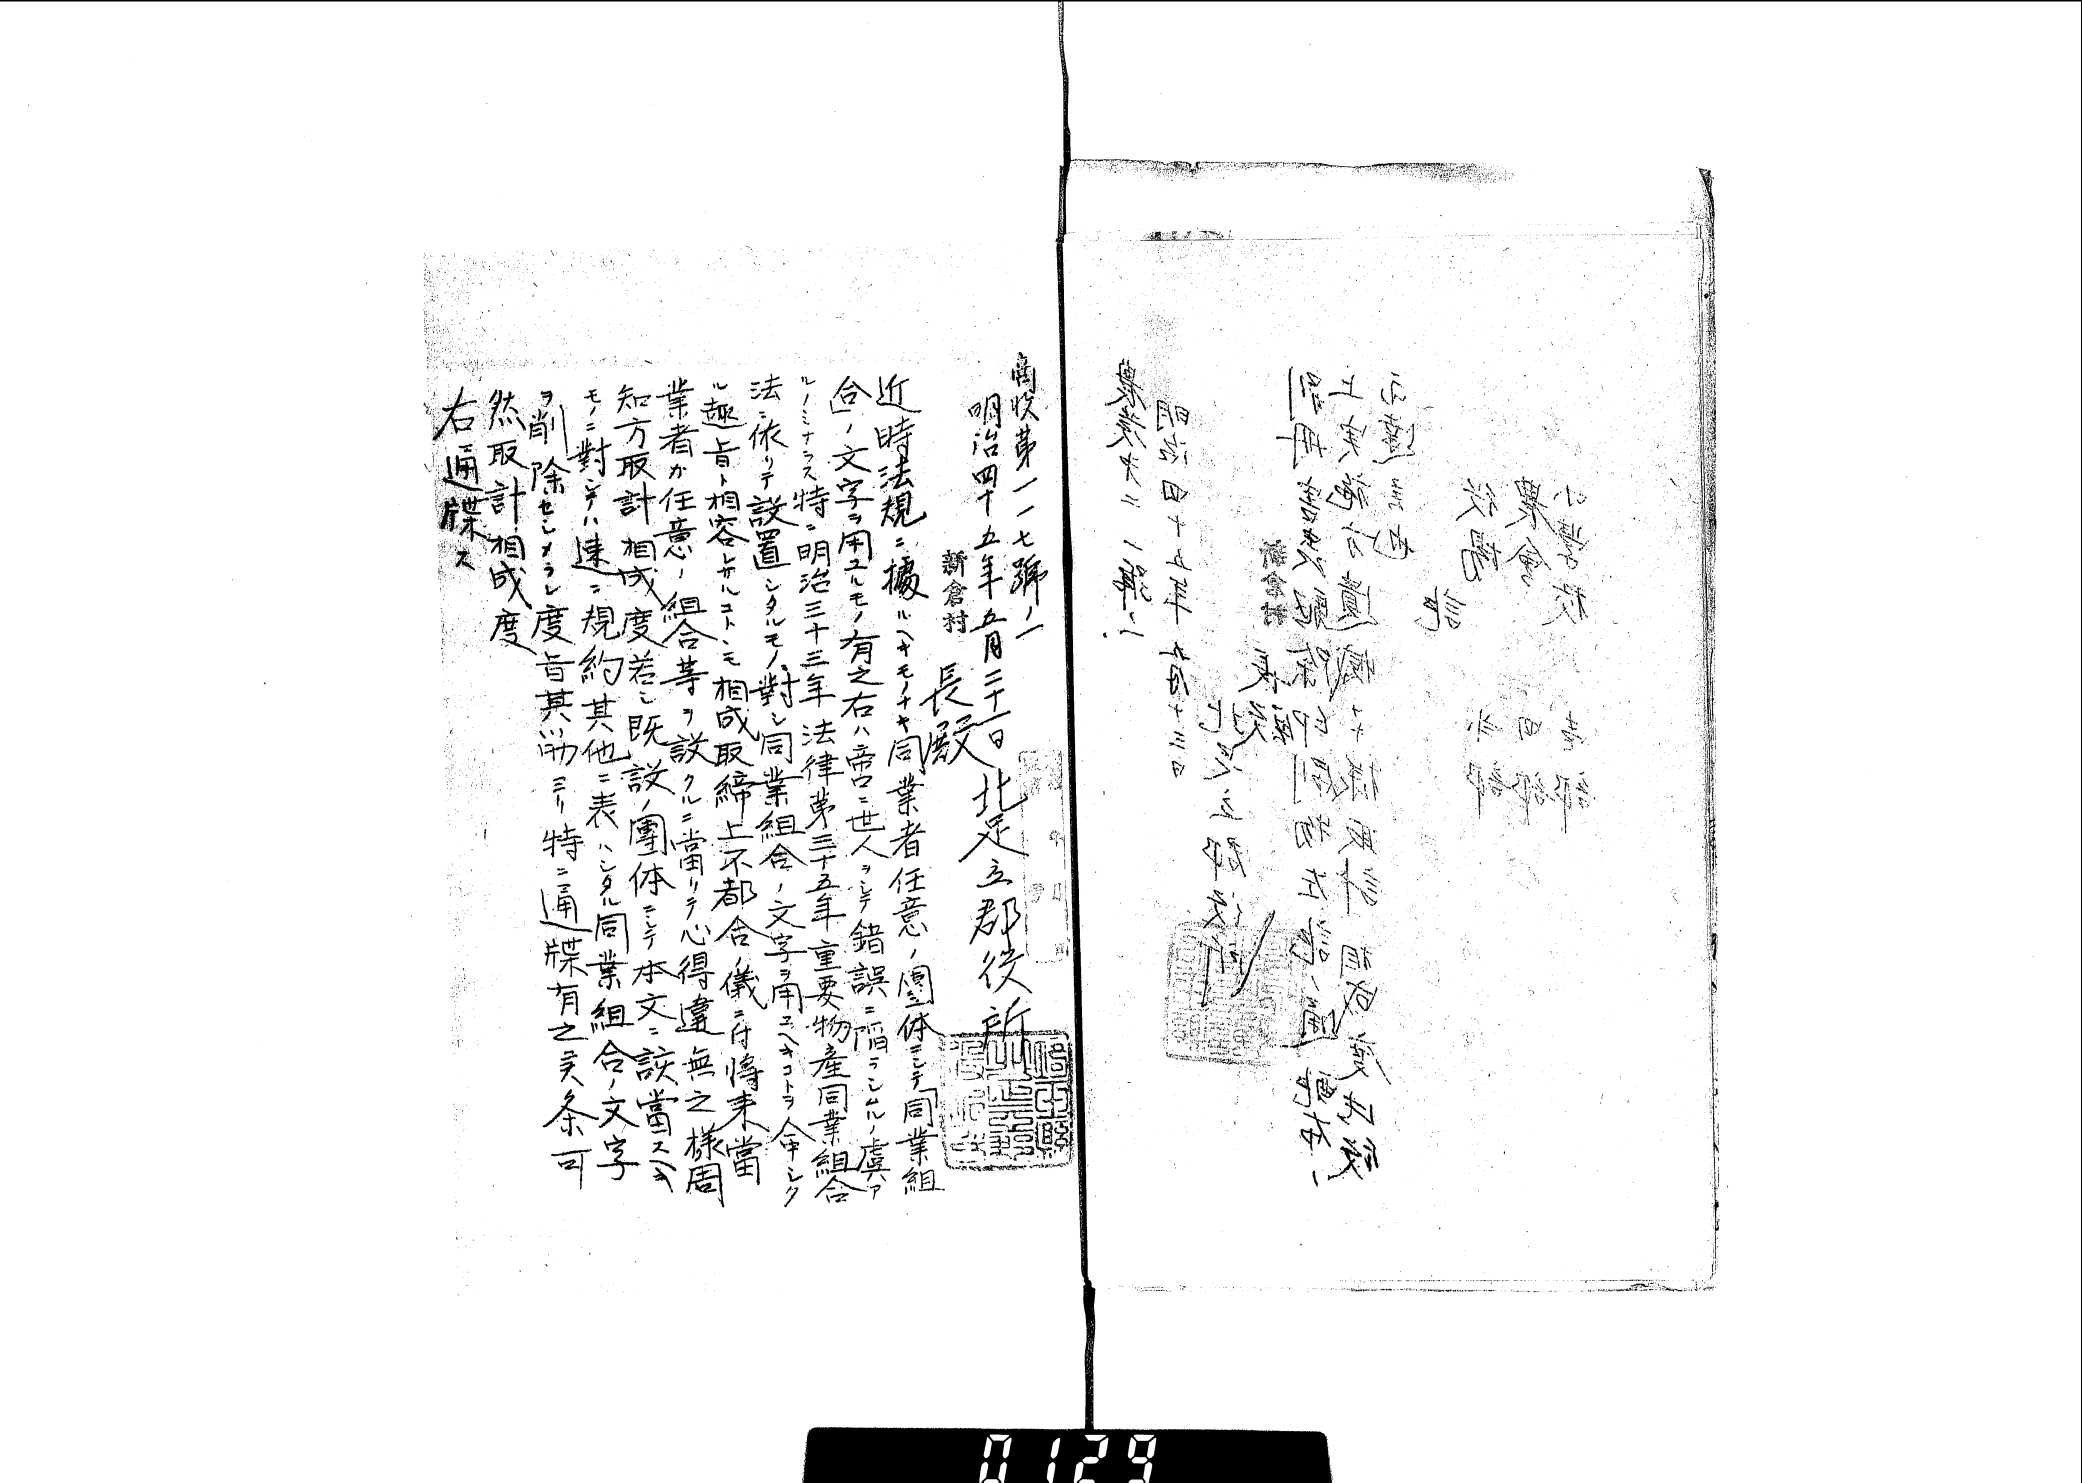 商收第一一七號ノ一
明治四十五年五月二十一日 北足立郡役所
新倉村長殿
近時法規ニ據ルヘキモノナキ同業者任意ノ團体ニシテ「同業組
合」ノ文字ヲ用ユルモノ有之右ハ啻ニ世人ヲシテ錯誤ニ陷ラシムルノ虞ア
ルノミナラス特ニ明治三十三年法律第三十五年重要物産同業組合
法ニ依リテ設置シタルモノニ對シ同業組合ノ文字ヲ用ユヘキコトヲ命シタ
ル趣旨ト相容レサルコトニモ相成取締上不都合ノ儀ニ付将来當
業者カ任意ノ組合等ヲ設クルニ當リテ心得違無之様周
知方取計相成度若シ既設ノ團体ニシテ本文ニ該當スヘキ
モノニ對シテハ速ニ規約其他ニ表ハシタル同業組合ノ文字
ヲ削除セシメラレ度旨其筋ヨリ特ニ通牒有之候条可
然取計相成度
右通牒ス
農發大二一號ノ一
明治四十五年五月十三日
北足立郡役所
新倉村長殿
別冊害虫驅除印刷物左記ノ通配布ノ
上実施方遺憾ナキ様取計相成度此段
記
役場
農會
小學校
0129